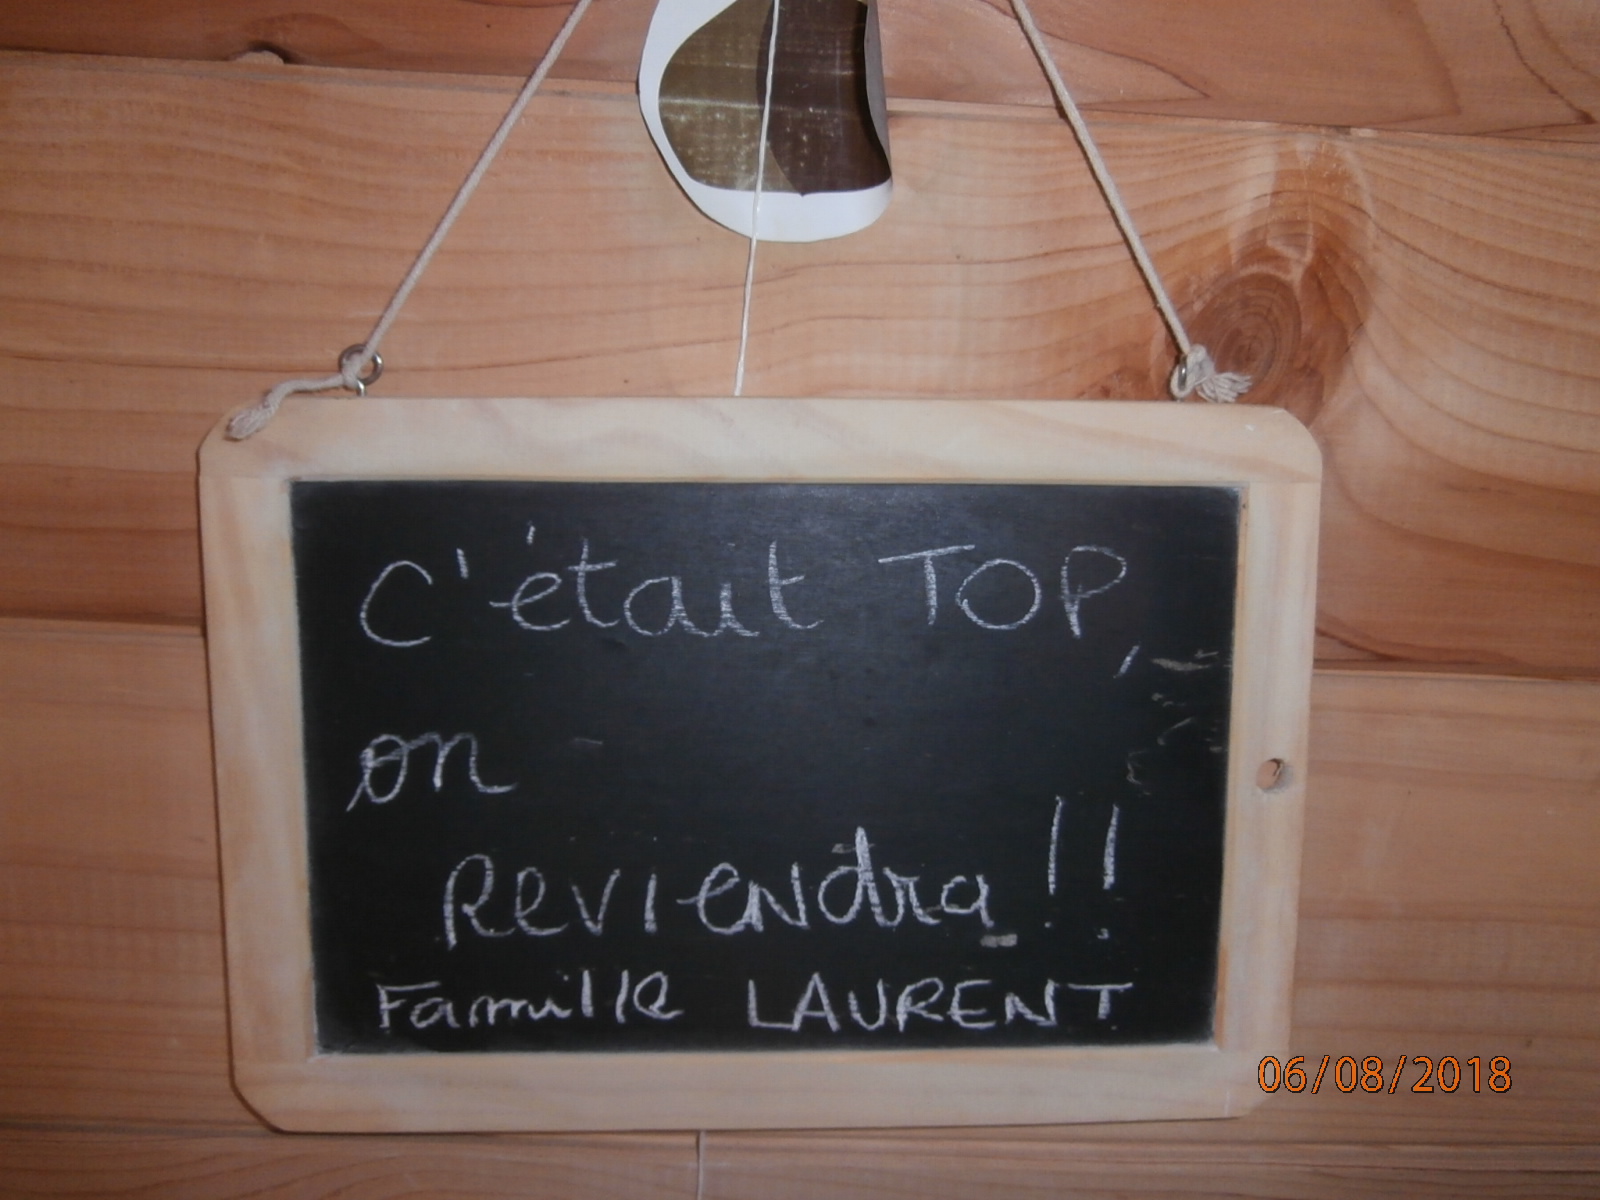 C'était TOP,
on
Reviendra !!
Famille LAURENT
06/08/2018